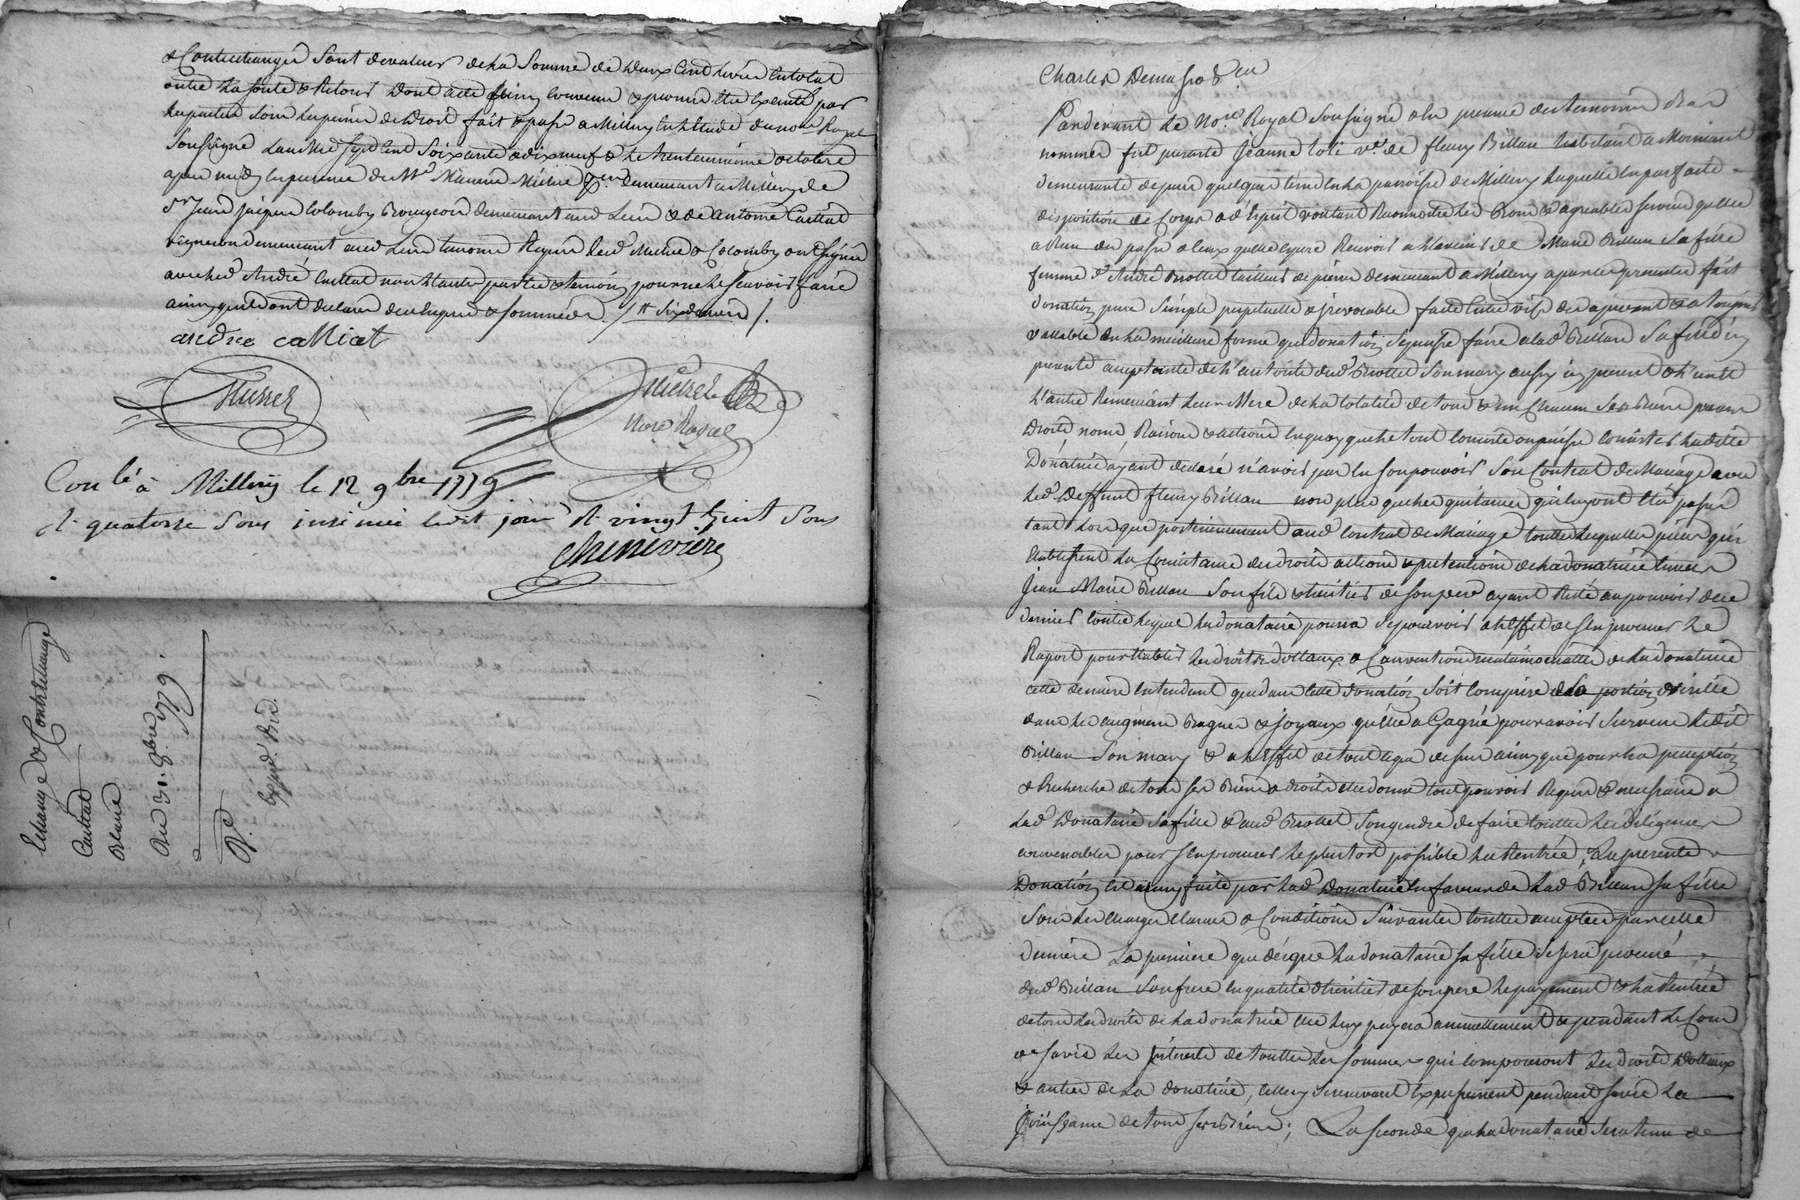 & Contrechangés sont de valeur de la somme de deux cent livres en total
outre la soute & Retour Dont acte ainsy convenu & promis être exécuté par
les parties sous les peines de Droit fait & passé a Millery en l'étude du no.re Royal
soussigné L'an Mil sept Cent soixante & dix neuf & le trente unieme octobre
apres midy en presence de demeurant a Millery de
s.r Jean Jaques Colomby Bourgeois demeurant aud. Lieu & de antoine Cattiat
vigneron demeurant aud. Lieu temoins Requis Lesd. Michel & Colomby ont signé
avec led. André Cattiat non l'autre partie & temoin pour ne le scavoir faire
ainsy qu'ils ont declaré de ce Enquis & sommés
andrea cattiat
Michel
No.re Royal
Con.lé à Millery le 12 9bre 1779
R. quatorze sous insinué ledit jour R. vingt huit sous
Chenevière
Echange & Contrechange
Cattiat
Blanc
Du 31. 8bre 1779.
Expéd.
Charles Demasso &.ca
Pardevant Le No.re Royal soussigné & en presence des temoins Bas
nommés fut presente Jeanne v.e de fleury Brillan habitant a Mornant
demeurante depuis quelque tems en la parroisse de Millery Laquelle en parfaite
disposition de Corps & d'Esprit voulant Reconnoitre les Bons & agreables services qu'elle
a Reçu du passé & ceux qu'elle espere Recevoir a l'avenir de Marie Brillan sa fille
femme d'André Brottet tailleur de pierre demeurant a Millery a par les presentes fait
Donation pure simple perpetuelle & irrevocable faite Entre vifs des apresent & a toujours
vallable en la meilleure forme que donation se puisse faire a lad. Brillan sa fille icy
presente acceptante de l'authorité dud. Brottet son mary aussy icy present & l'un &
l'autre Remerciant leur Mere de la totalité de tous & un Chacun ses Biens presens
Droits, noms, Raisons & actions en quoy que le tout consiste ou puisse consister, ladite
Donatrice ayant declaré n'avoir pas en son pouvoir son Contrat de Mariage avec
led. Deffunt fleury Brillan non plus que les quittances qui luy ont été passés
tant lors que posterieurement aud. Contrat de Mariage toutes lesquelles pièces qui
établissent la Consistance des droits actions & pretentions de la donatrice envers
Jean Marie Brillan son fils & héritier de son pere ayant resté au pouvoir de ce
dernier contre lequel la donataire pourra se pourvoir a l'effet de s'en procurer Le
Raport pour établir les droits dottaux & Conventions matrimonialles de la donatrice
cette derniere entendant que dans cette donation soit comprise la portion virille
dans les augmens Bagues & joyaux qu'elle a Gagné pour avoir survecu ledit
Brillan son mary & a l'effet de tout ce que dessus ainsy que pour la perception
& Recherche de tous ses Biens & droits elle donne tout pouvoir Requis & necessaire a
Lad. Donataire sa fille & aud. Brottet son gendre de faire toutes les diligences
convenables pour s'en procurer le plus tot possible la Rentrée, La presente
Donation est ainsy faite par lad. Donatrice en faveur de lad. Brillan sa fille
sous les Charges Clauses & Conditions suivantes toutes acceptées par cette
derniere La premiere que dès que la donataire sa fille se sera procuré
dud. Brillan son frere en qualité d'héritier de son pere le payement & la Rentrée
de tous les droits de la donatrice elle luy payera annuellement & pendant le Cours
de sa vie les interets de toutes les sommes qui composeront les droits dottaux
& autres de la donatrice, celle cy se reservant Expressement pendant sa vie La
Jouissance de tous ses Biens; La seconde que la donataire sera tenue de